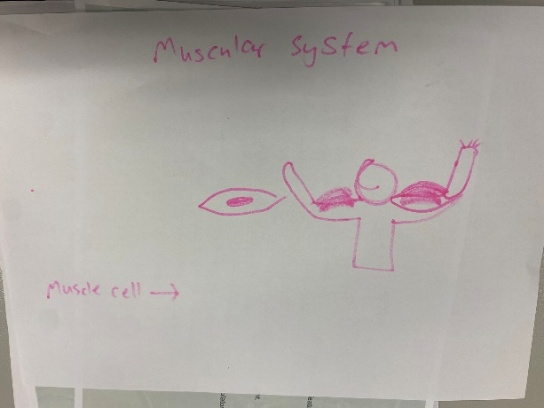 Muscular System
Muscle cell →